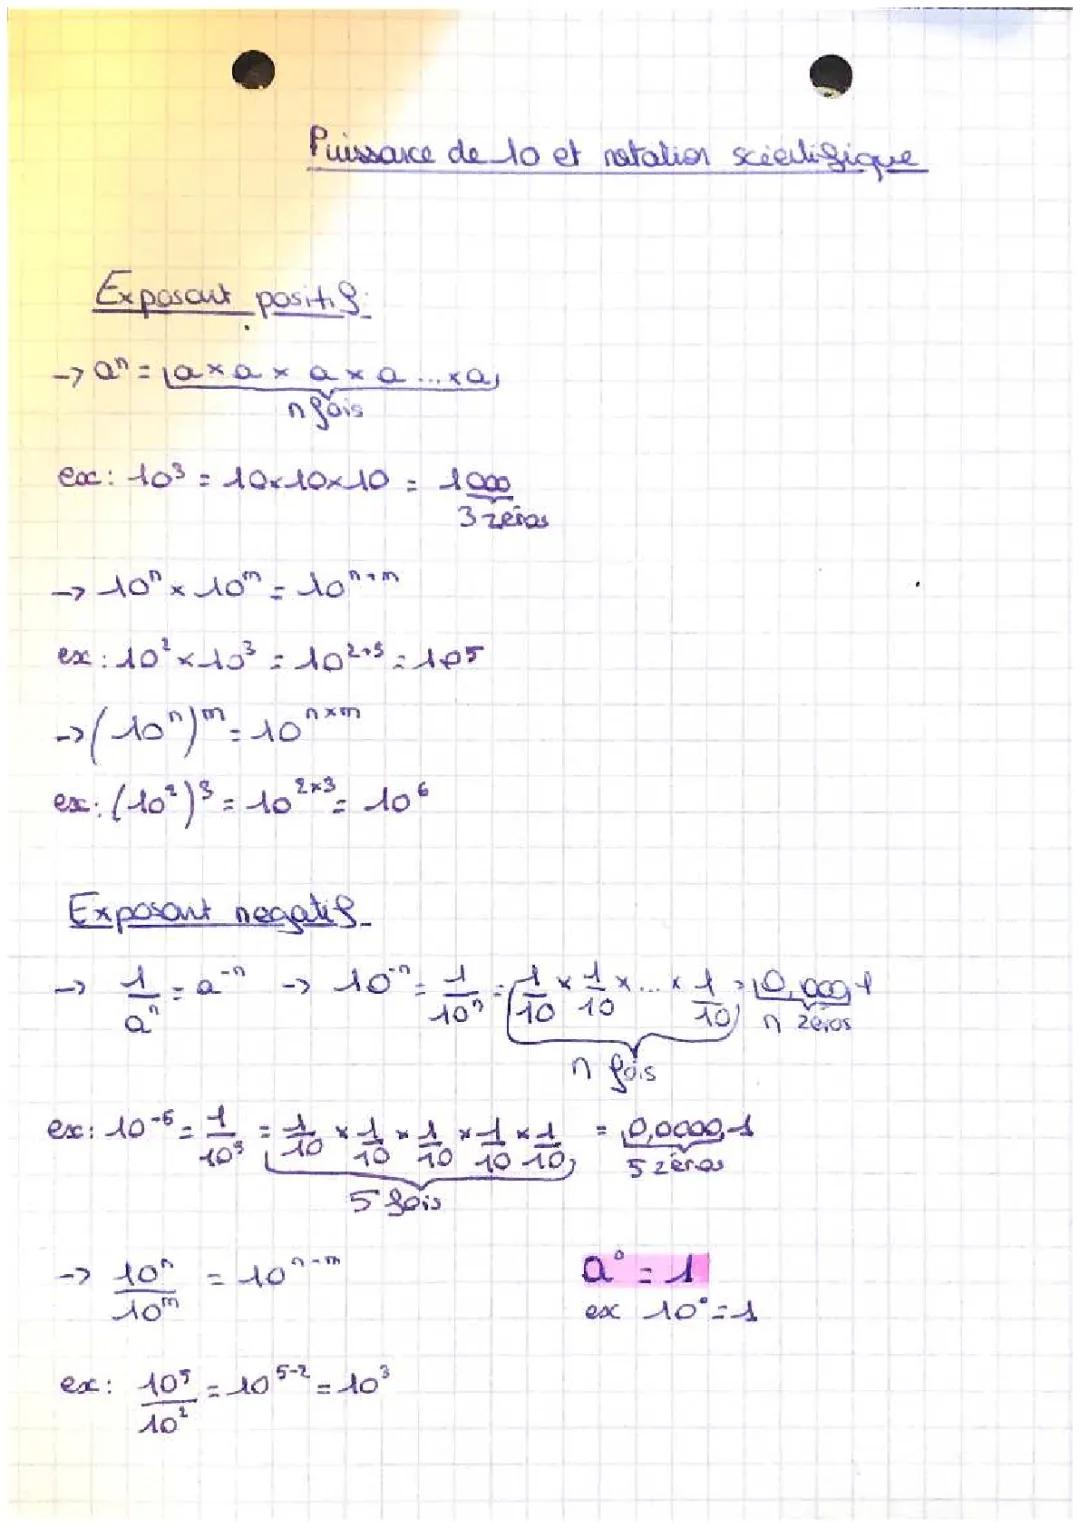 Puissance de 10 et notation scientifique
Exposant positif:
→ aⁿ = a × a × a × a ... × a
n fois
ex: 10³ = 10×10×10 = 1000
3 zéros
→ 10ⁿ × 10ᵐ = 10ⁿ⁺ᵐ
ex: 10² × 10³ = 10²⁺³ = 10⁵
→ (10ⁿ)ᵐ = 10ⁿˣᵐ
ex: (10²)³ = 10²ˣ³ = 10⁶
Exposant negatif
→ 1/aⁿ = a⁻ⁿ → 10⁻ⁿ = 1/10ⁿ = 1/10 × 1/10 × ... × 1/10 = 0,0001
n fois n zéros
ex: 10⁻⁵ = 1/10⁵ = 1/10 × 1/10 × 1/10 × 1/10 × 1/10 = 0,00001
5 fois 5 zéros
→ 10ⁿ/10ᵐ = 10ⁿ⁻ᵐ
a⁰ = 1
ex 10⁰ = 1
ex: 10⁵/10² = 10⁵⁻² = 10³